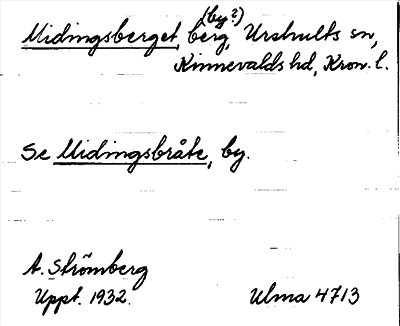 (by?)
Midingsberget, berg, Urshults sn,
Kinnevalds hd, Kron. l.
Se Midingsbråte, by.
A. Strömberg
Uppt. 1932.
Ulma 4713